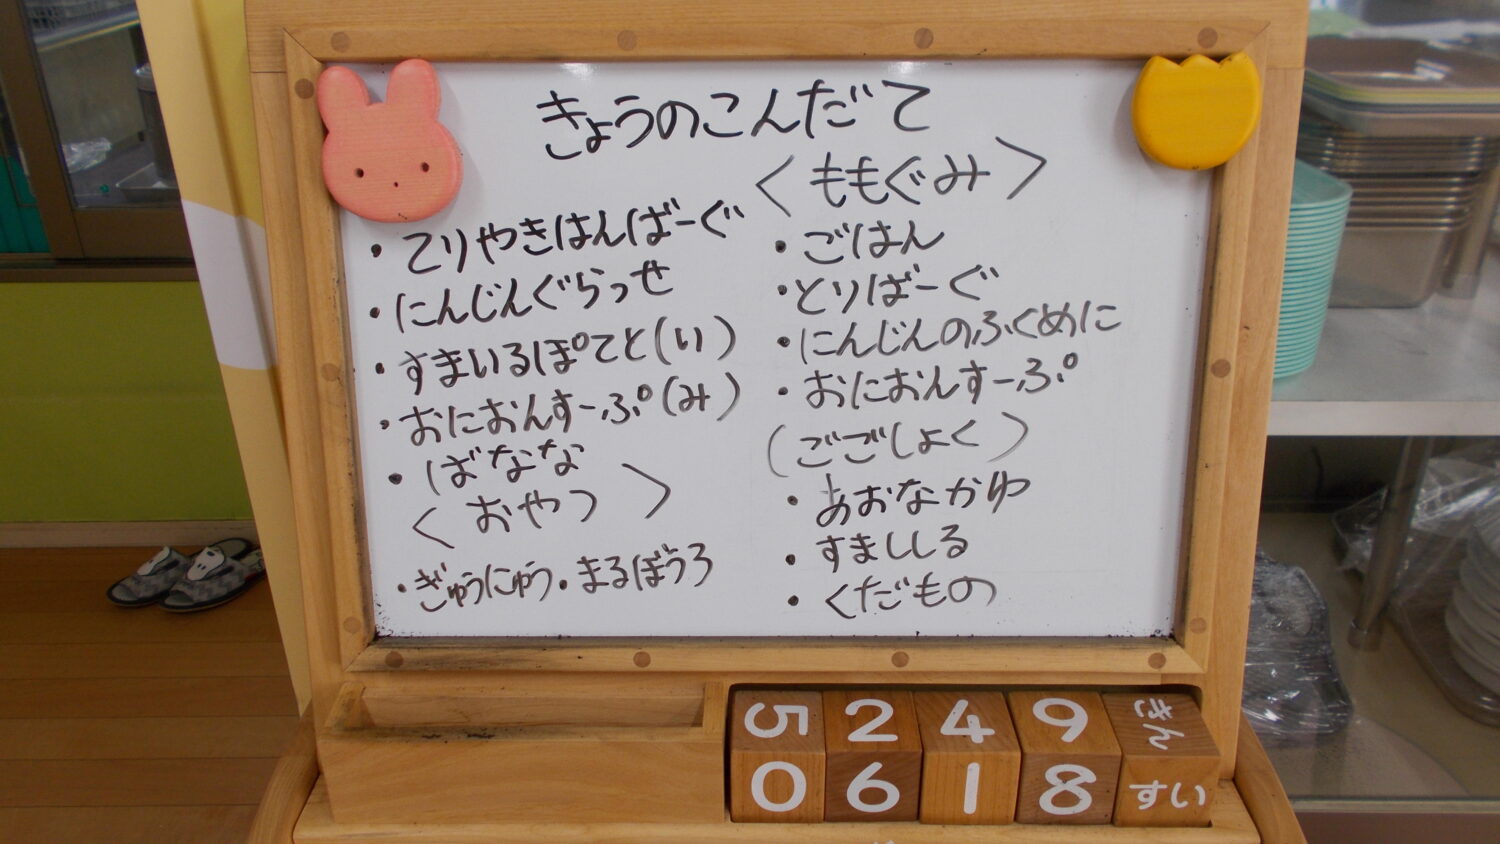 きょうのこんだて
・てりやきはんばーぐ
・にんじんぐらっせ
・すまいるぽてと(い)
・おにおんすーぷ(み)
・ばなな
<おやつ>
・ぎゅうにゅう・まるぼうろ
<ももぐみ>
・ごはん
・とりばーぐ
・にんじんのふくめに
・おにおんすーぷ
(ごごしょく)
・あおなかゆ
・すましじる
・くだもの
5 2 4 9 きん
0 6 1 8 すい